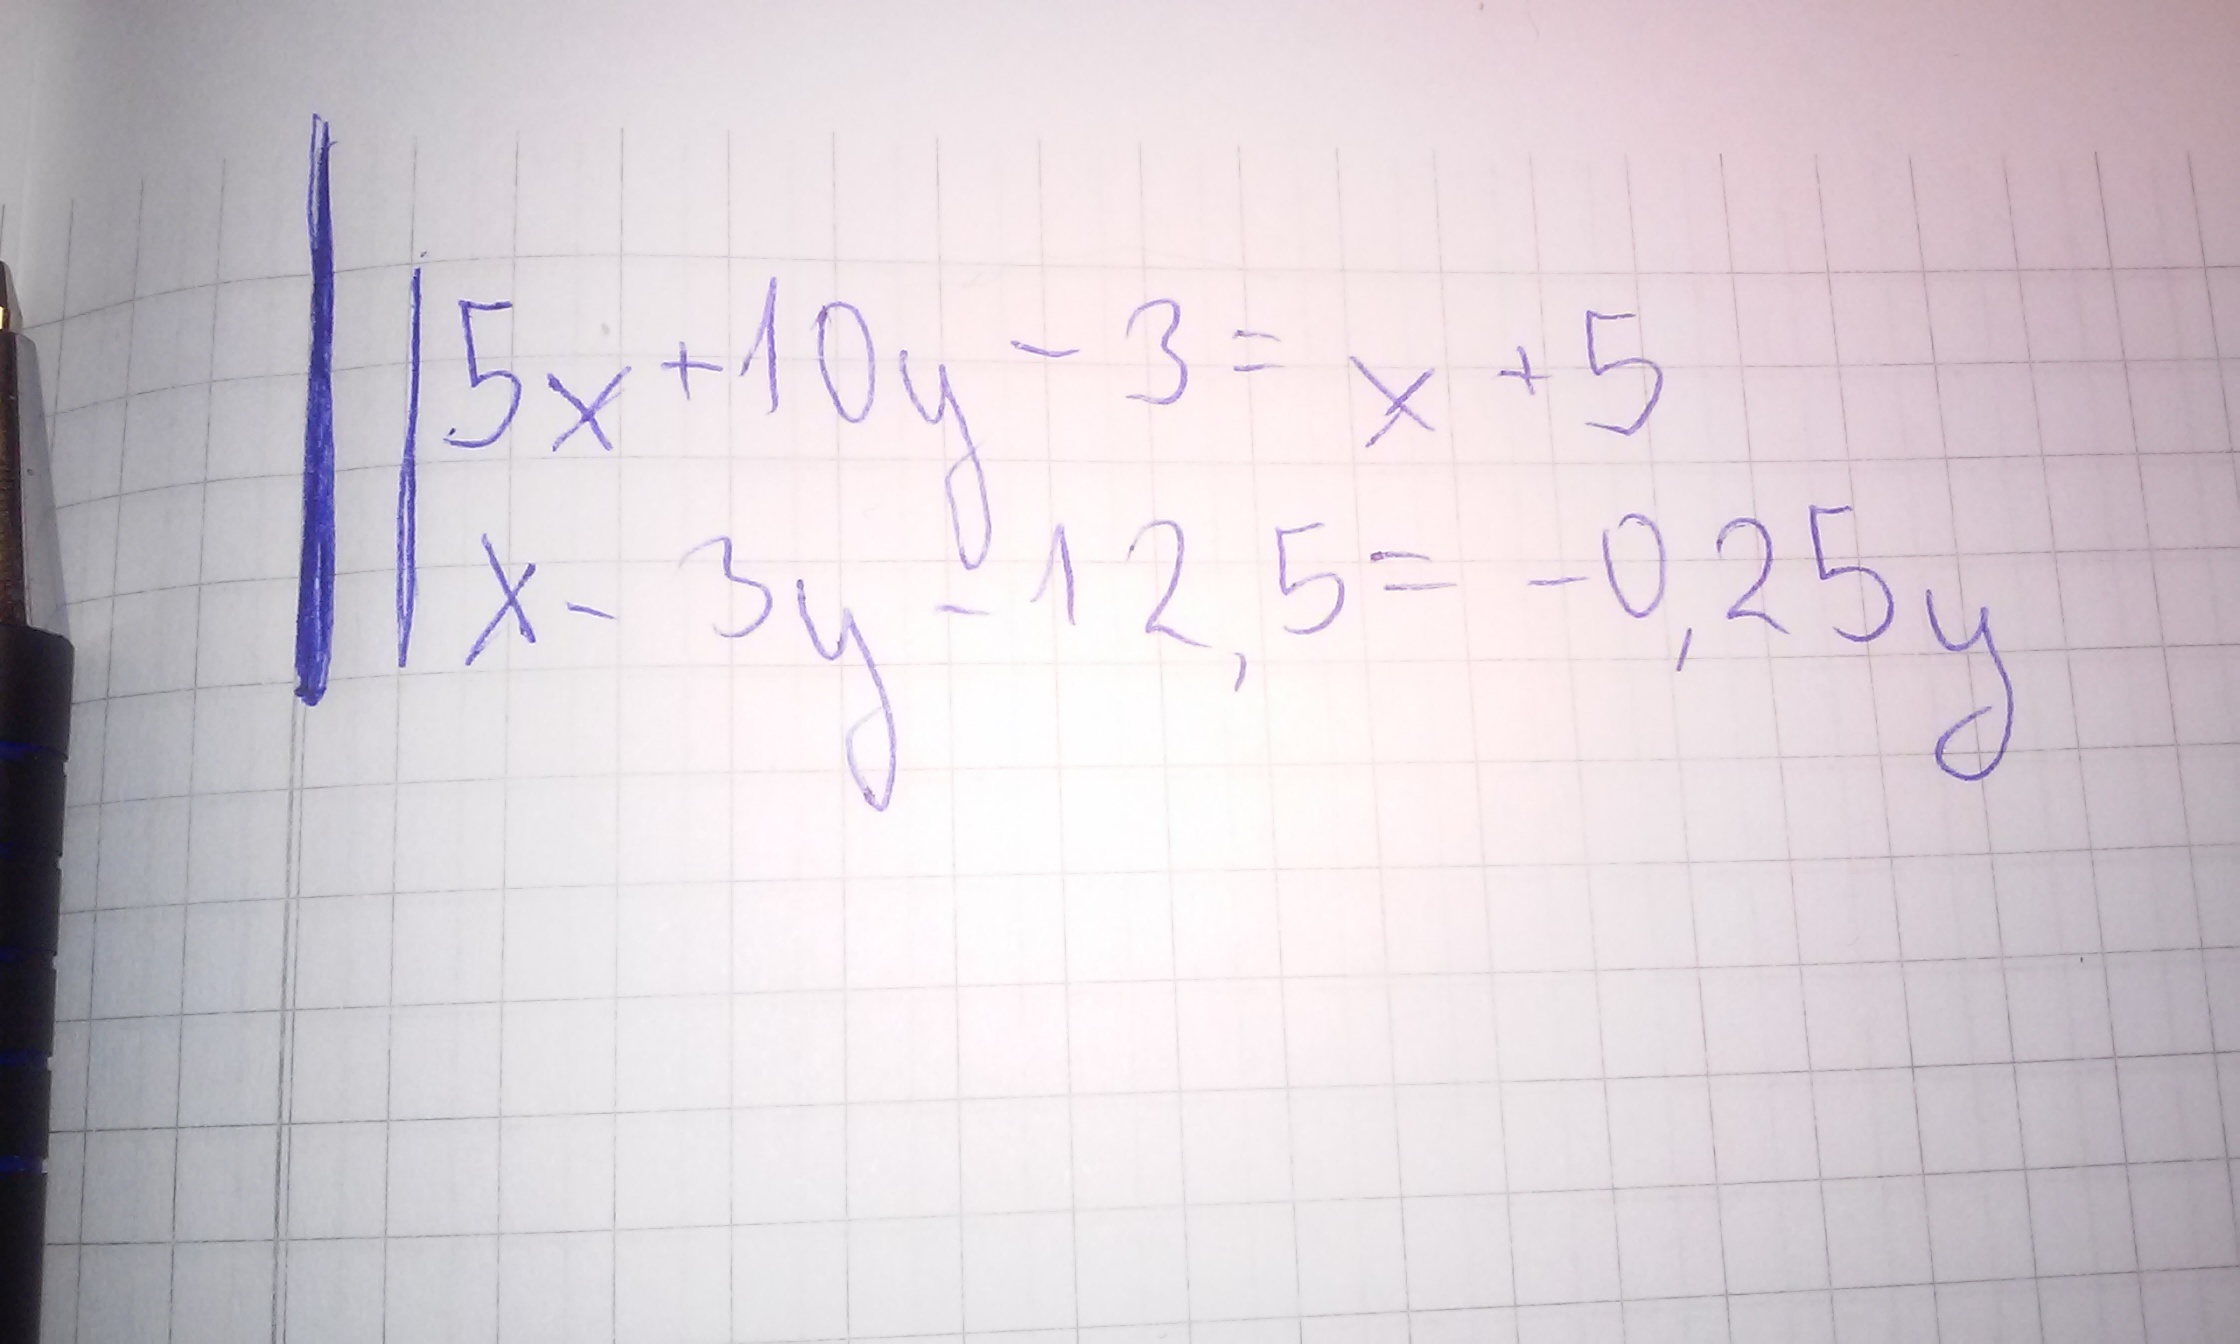 5x+10y-3=x+5
x-3y-12,5=-0,25y